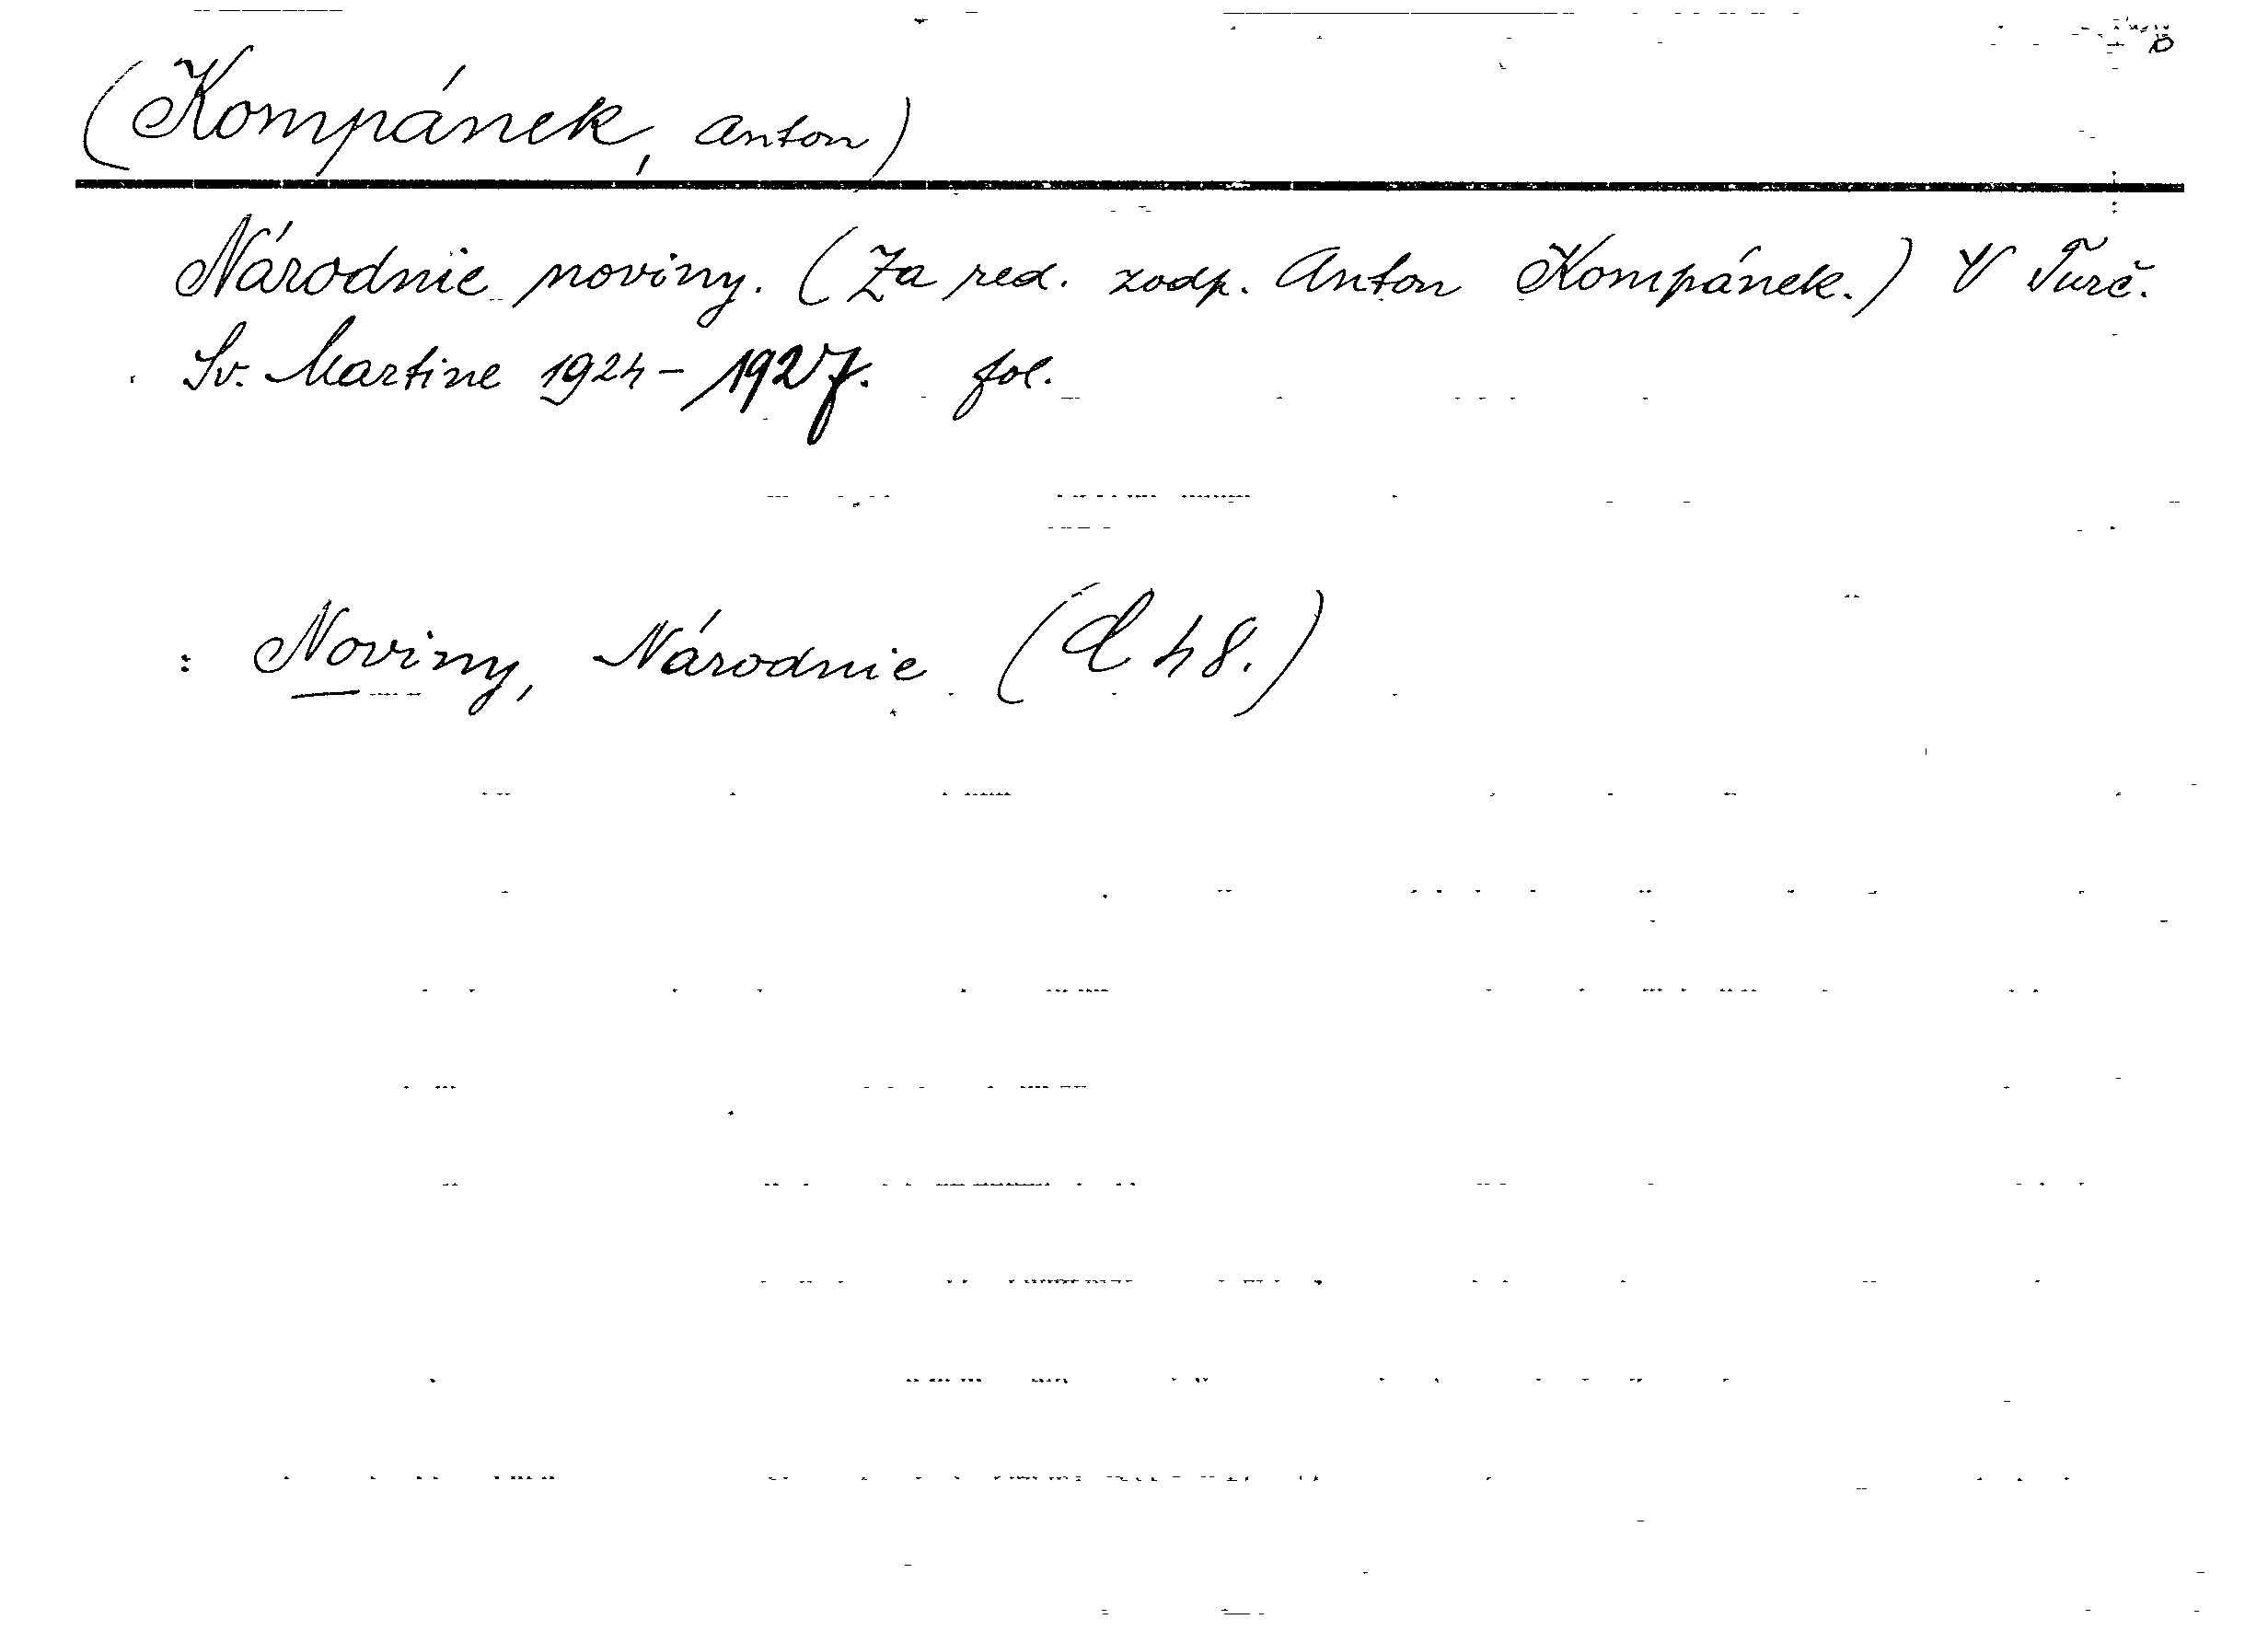 (Kompánek, Anton)
Národnie noviny. (Za red. zodp. Anton Kompánek.) V Turč.
Sv. Martine 1924-1927. fol.
: Noviny, Národnie (d 48.)